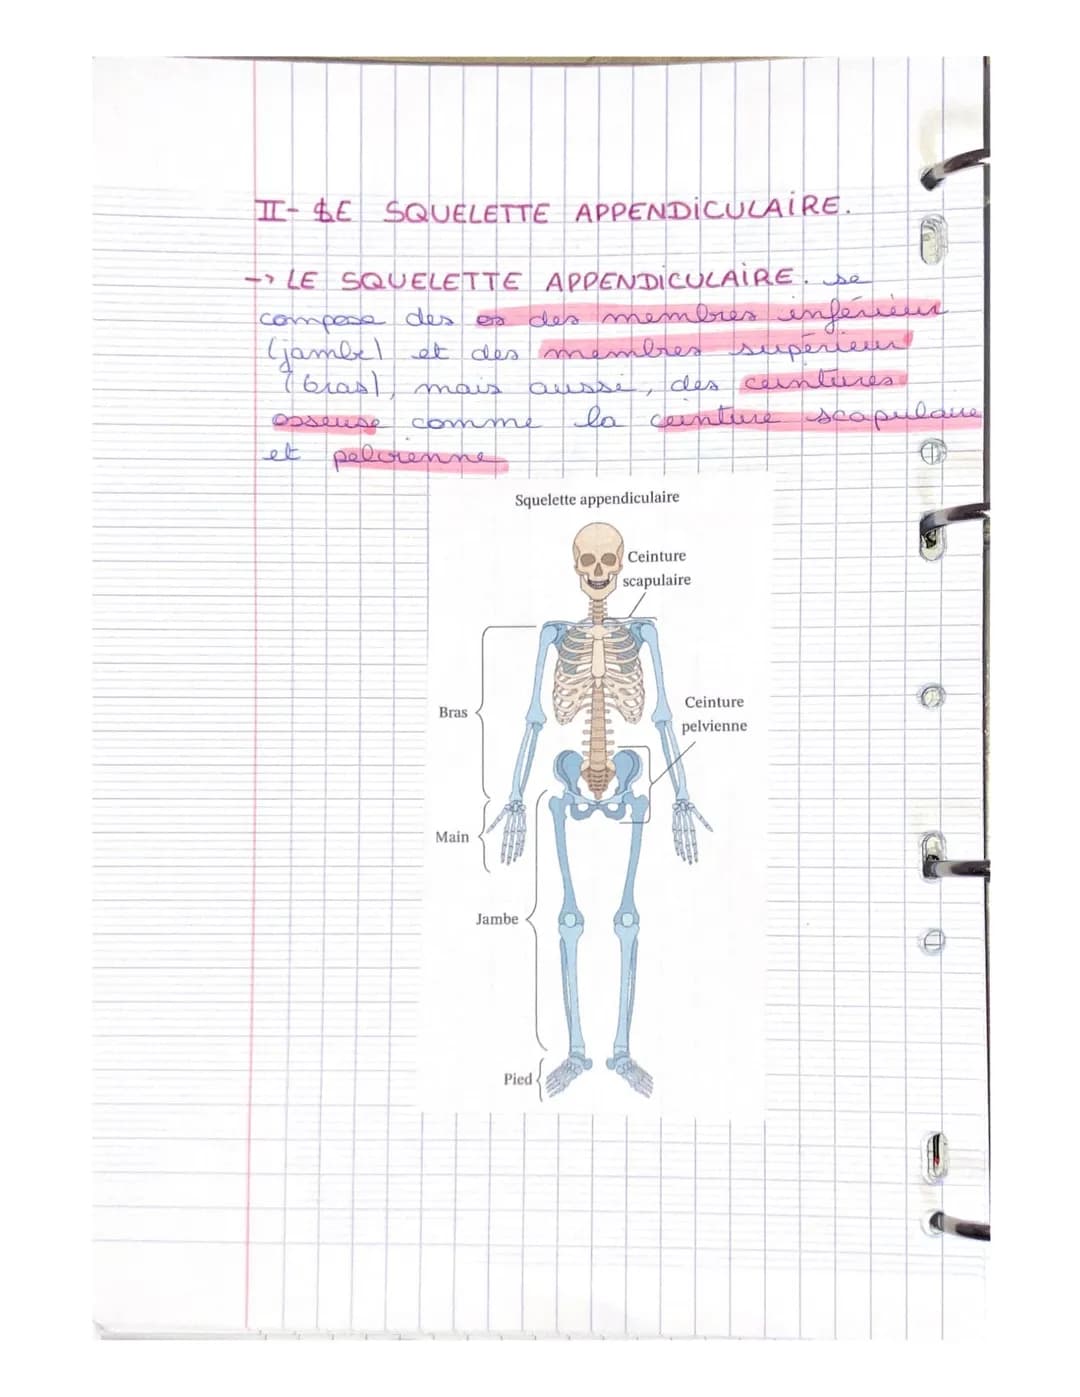 II- LE SQUELETTE APPENDICULAIRE.
-> LE SQUELETTE APPENDICULAIRE. se
compose des os des membres inférieur
(jambe) et des membres supérieur
(bras), mais aussi, des ceintures
osseuse comme la ceinture scapulaire
et pelvienne
Squelette appendiculaire
Ceinture
scapulaire
Bras
Ceinture
pelvienne
Main
Jambe
Pied